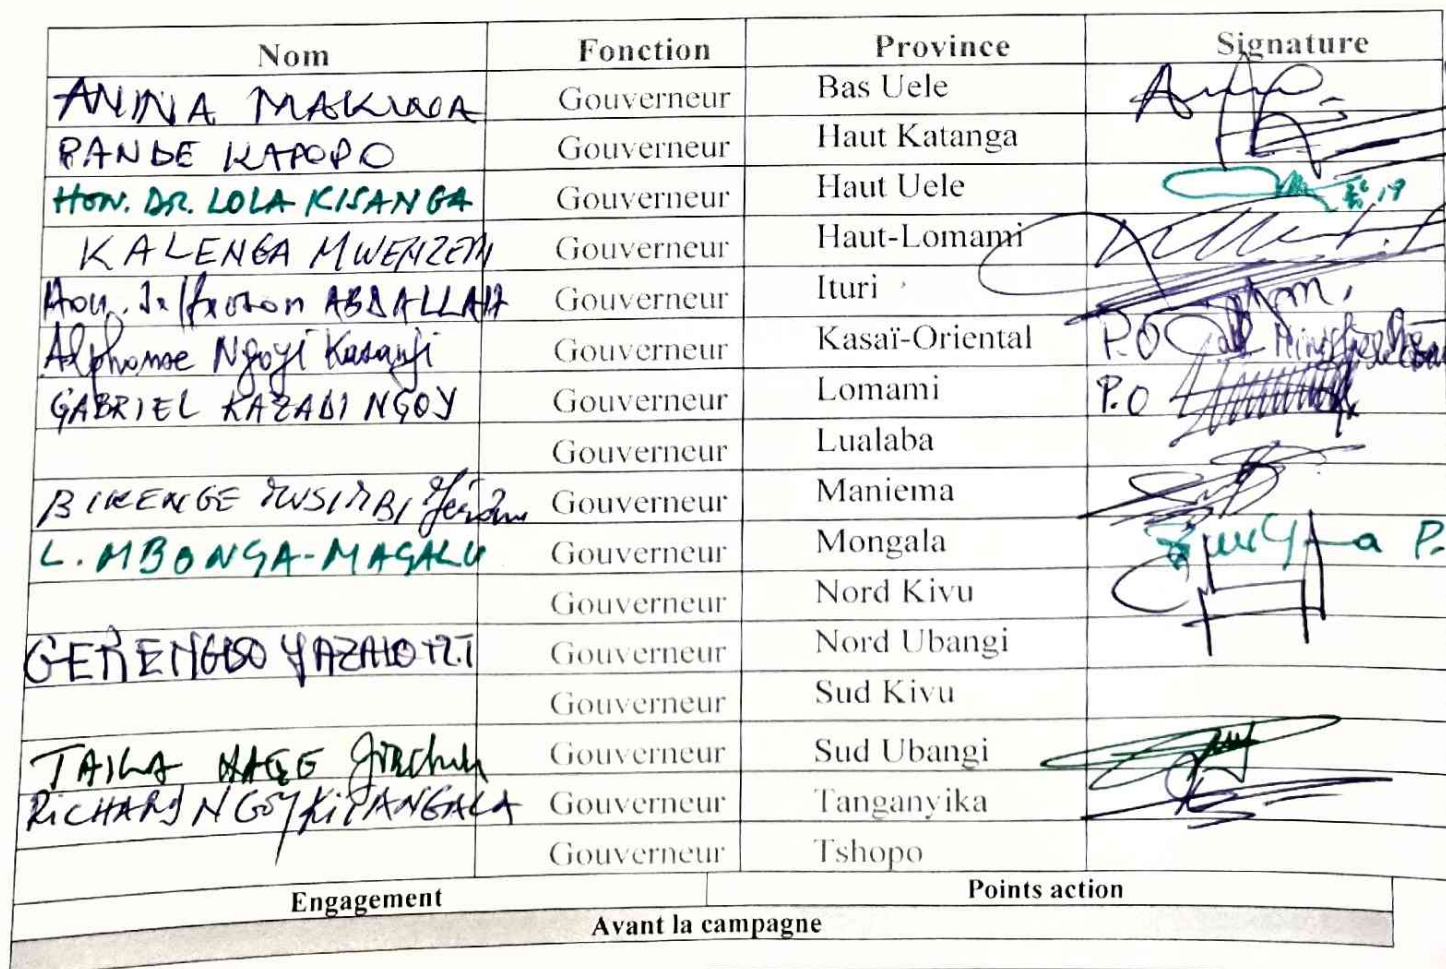 Nom Fonction Province Signature
ANINA MAKWAA Gouverneur Bas Uele
PANDE KAPOPO Gouverneur Haut Katanga
HON. DR. LOLA KISANGA Gouverneur Haut Uele
KALENGA MWENZEMI Gouverneur Haut-Lomami
Hon. ABDALLAH Gouverneur Ituri
Alphonse Ngoyi Kasanji Gouverneur Kasaï-Oriental P.O
GABRIEL KAZADI NGOY Gouverneur Lomami P.O
Gouverneur Lualaba
BIKENGE MUSIMBI Gouverneur Maniema
L. MBONGA-MAGALU Gouverneur Mongala
Gouverneur Nord Kivu
Gouverneur Nord Ubangi
Gouverneur Sud Kivu
Gouverneur Sud Ubangi
RICHARD NGOY KITANGALA Gouverneur Tanganyika
Gouverneur Tshopo
Engagement Points action
Avant la campagne